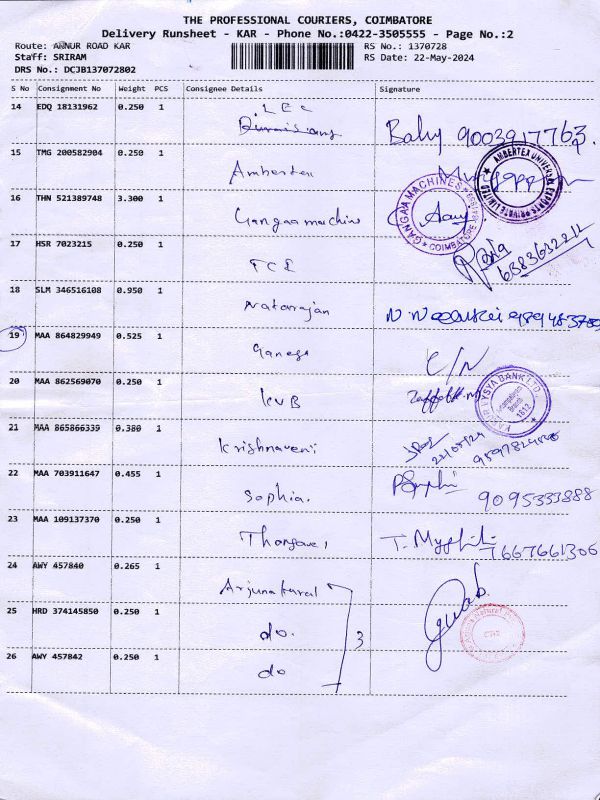 THE PROFESSIONAL COURIERS, COIMBATORE
Delivery Runsheet - KAR - Phone No.:0422-3505555 - Page No.:2
Route: ANNUR ROAD KAR RS No.: 1370728
Staff: SRIRAM RS Date: 22-May-2024
DRS No.: DCJB137072802
S No Consignment No Weight PCS Consignee Details Signature
14 EDQ 18131962 0.250 1 LEC Baby 9003917763.
15 TMG 200582904 0.250 1 Ambertex
AMBERTEX UNIVERSAL EXPORTS PRIVATE LIMITED
16 THN 521389748 3.300 1 Gangaa machine
GANGAA MACHINES COIMBATORE
17 HSR 7023215 0.250 1 FCI 6383632212
18 SLM 346516108 0.950 1 Natarajan
19 MAA 864829949 0.525 1 Ganesh C/N
20 MAA 862569070 0.250 1 KVB
KARUR VYSYA BANK LTD. Branch
21 MAA 865866339 0.380 1 Krishnaveni 22/05/24
22 MAA 703911647 0.455 1 Sophia. 9095333888
23 MAA 109137370 0.250 1 7667661306
24 AWY 457840 0.265 1
25 HRD 374145850 0.250 1 do. 3
26 AWY 457842 0.250 1 do